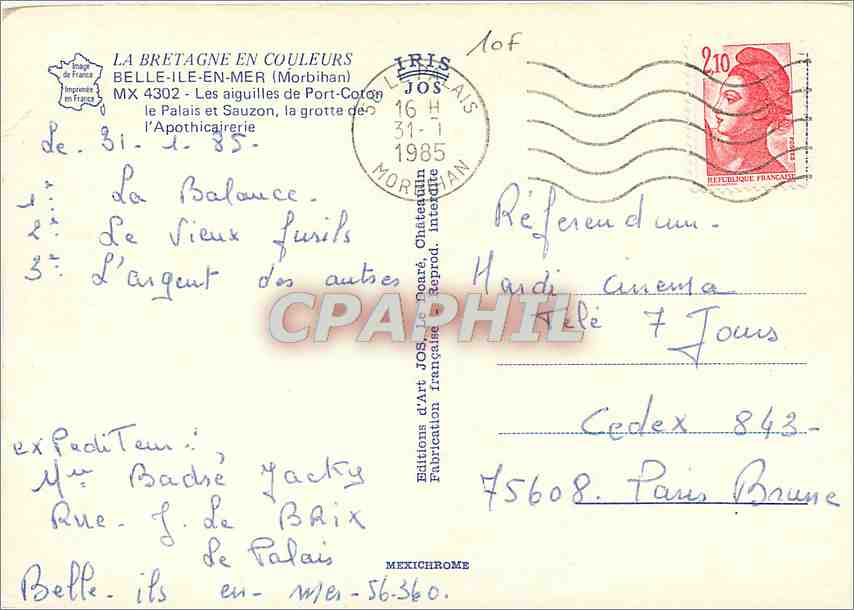 Image
de France
Imprimée
en France
LA BRETAGNE EN COULEURS
BELLE-ILE-EN-MER (Morbihan)
MX 4302 - Les aiguilles de Port-Coton
le Palais et Sauzon, la grotte de
l'Apothicairerie
IRIS
JOS
10F
56 LE PALAIS
16 H
31-1
1985
MORBIHAN
2,10
POSTES
REPUBLIQUE FRANÇAISE
Le. 31-1-85-
1° La Balance.
2° Le Vieux fusils
3° L'argent des autres
expediTeur:
Badsé Jacky
Rue. J. Le BRIX
Le Palais
Belle-ils en-mer-56-360.
Editions d'Art JOS, Le Doaré, Châteaulin
Fabrication française - Reprod. interdite
MEXICHROME
Réferendum.
Mardi cinema
Télé 7 Jours
Cedex 843-
75608. Paris Brune
CPAPHIL